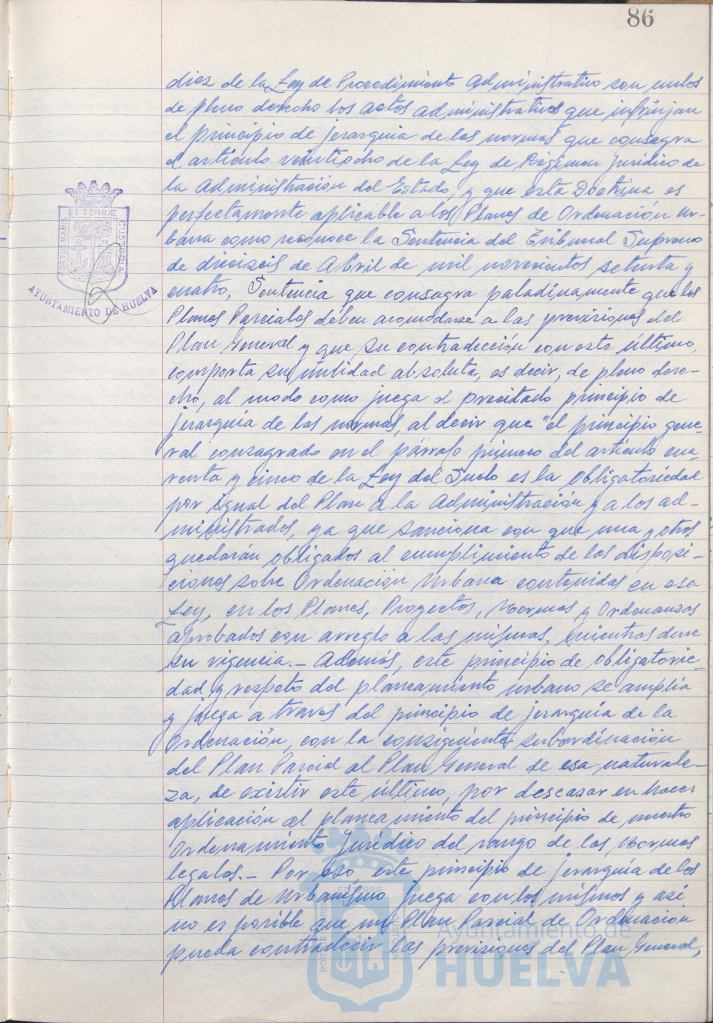 86
diez de la Ley de Procedimiento Administrativo son nulos
de pleno derecho los actos administrativos que infrinjan
el principio de jerarquía de las normas que consagra
el artículo veintiocho de la Ley de Régimen Jurídico de
la Administración del Estado, y que esta Doctrina es
perfectamente aplicable a los Planes de Ordenación ur-
bana como reconoce la Sentencia del Tribunal Supremo
de dieciseis de Abril de mil novecientos setenta y
cuatro, Sentencia que consagra paladinamente que los
Planes Parciales deben acomodarse a las previsiones del
Plan General y que su contradicción con este último,
comporta su nulidad absoluta, es decir, de pleno dere-
cho, al modo como juega el precitado principio de
jerarquía de las normas, al decir que "el principio gene-
ral consagrado en el párrafo primero del artículo cua-
renta y cinco de la Ley del Suelo es la obligatoriedad
por igual del Plan a la Administración y a los ad-
ministrados, ya que sanciona con que una y otros
quedarán obligados al cumplimiento de las disposi-
ciones sobre Ordenación Urbana contenidas en esa
Ley, en los Planes, Proyectos, Normas y Ordenanzas
aprobados con arreglo a las mismas, mientras dure
su vigencia.- Además, este principio de obligatorie-
dad y respeto del planeamiento urbano se amplía
y juega a traves del principio de jerarquía de la
Ordenación, con la consiguiente subordinación
del Plan Parcial al Plan General de esa naturale-
za, de existir este último, por descasar en hacer
aplicación al planeamiento del principio de nuestro
Ordenamiento Jurídico del rango de las Normas
legales.- Por eso, este principio de jerarquía de los
Planes de Urbanismo juega con los mismos y así
no es posible que un Plan Parcial de Ordenación
pueda contradecir las previsiones del Plan General,
ET TERRAE
PORTUS MARIS
CUSTODIA
AYUNTAMIENTO DE HUELVA
Ayuntamiento de
HUELVA